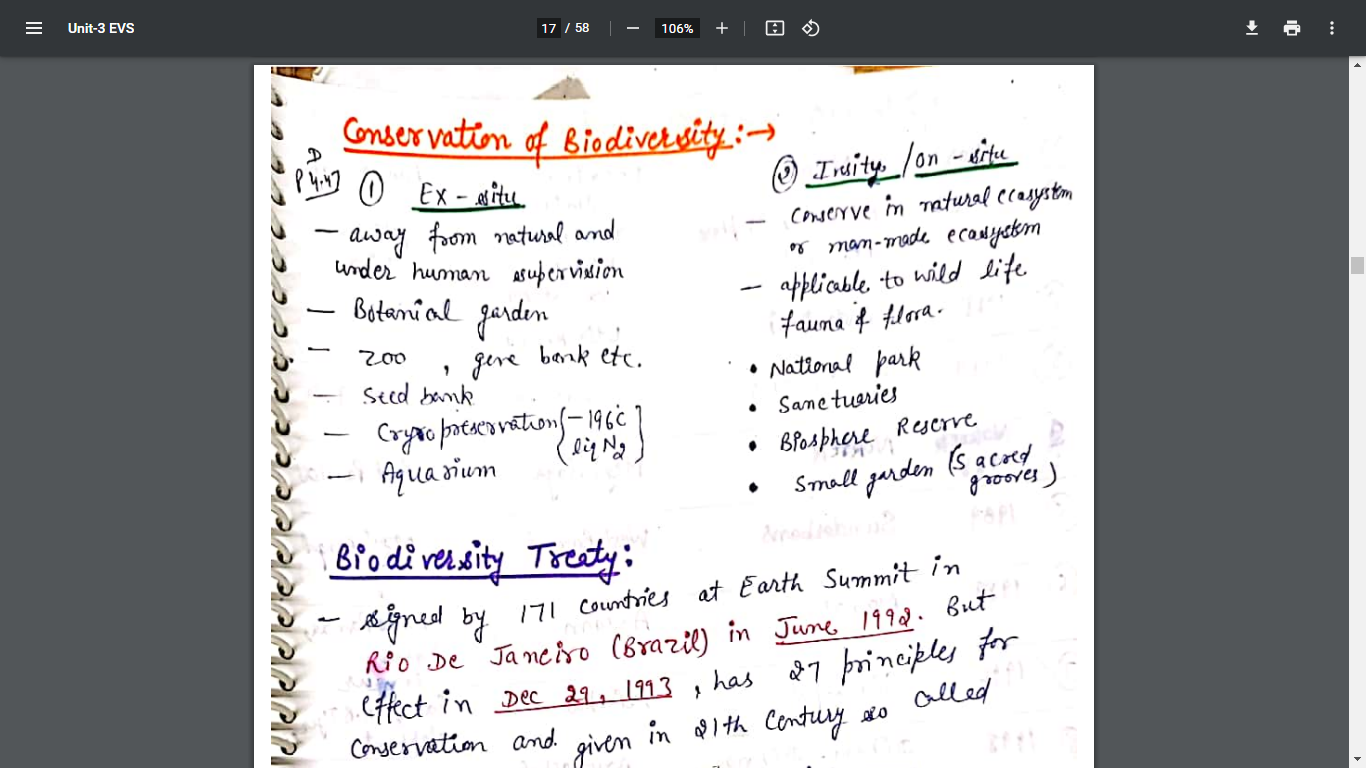 Unit-3 EVS
17 / 58
106%
Conservation of Biodiversity:→
D
P 4.47
① Ex-situ
— away from natural and
under human supervision
— Botanical garden
— zoo, gene bank etc.
— Seed bank
— Cryropreservation (-196°C
liq N2)
— Aquarium
② Insity / on-situ
— conserve in natural ecasystem
or man-made ecasystem
— applicable to wild life
fauna & flora.
• National park
• Sanctueries
• Biosphere Reserve
• Small garden (Sacred
grooves)
Biodiversity Treaty:
— signed by 171 countries at Earth Summit in
Rio De Janeiro (Brazil) in June 1992. But
effect in Dec 29, 1993, has 27 principles for
conservation and given in 21th Century so called